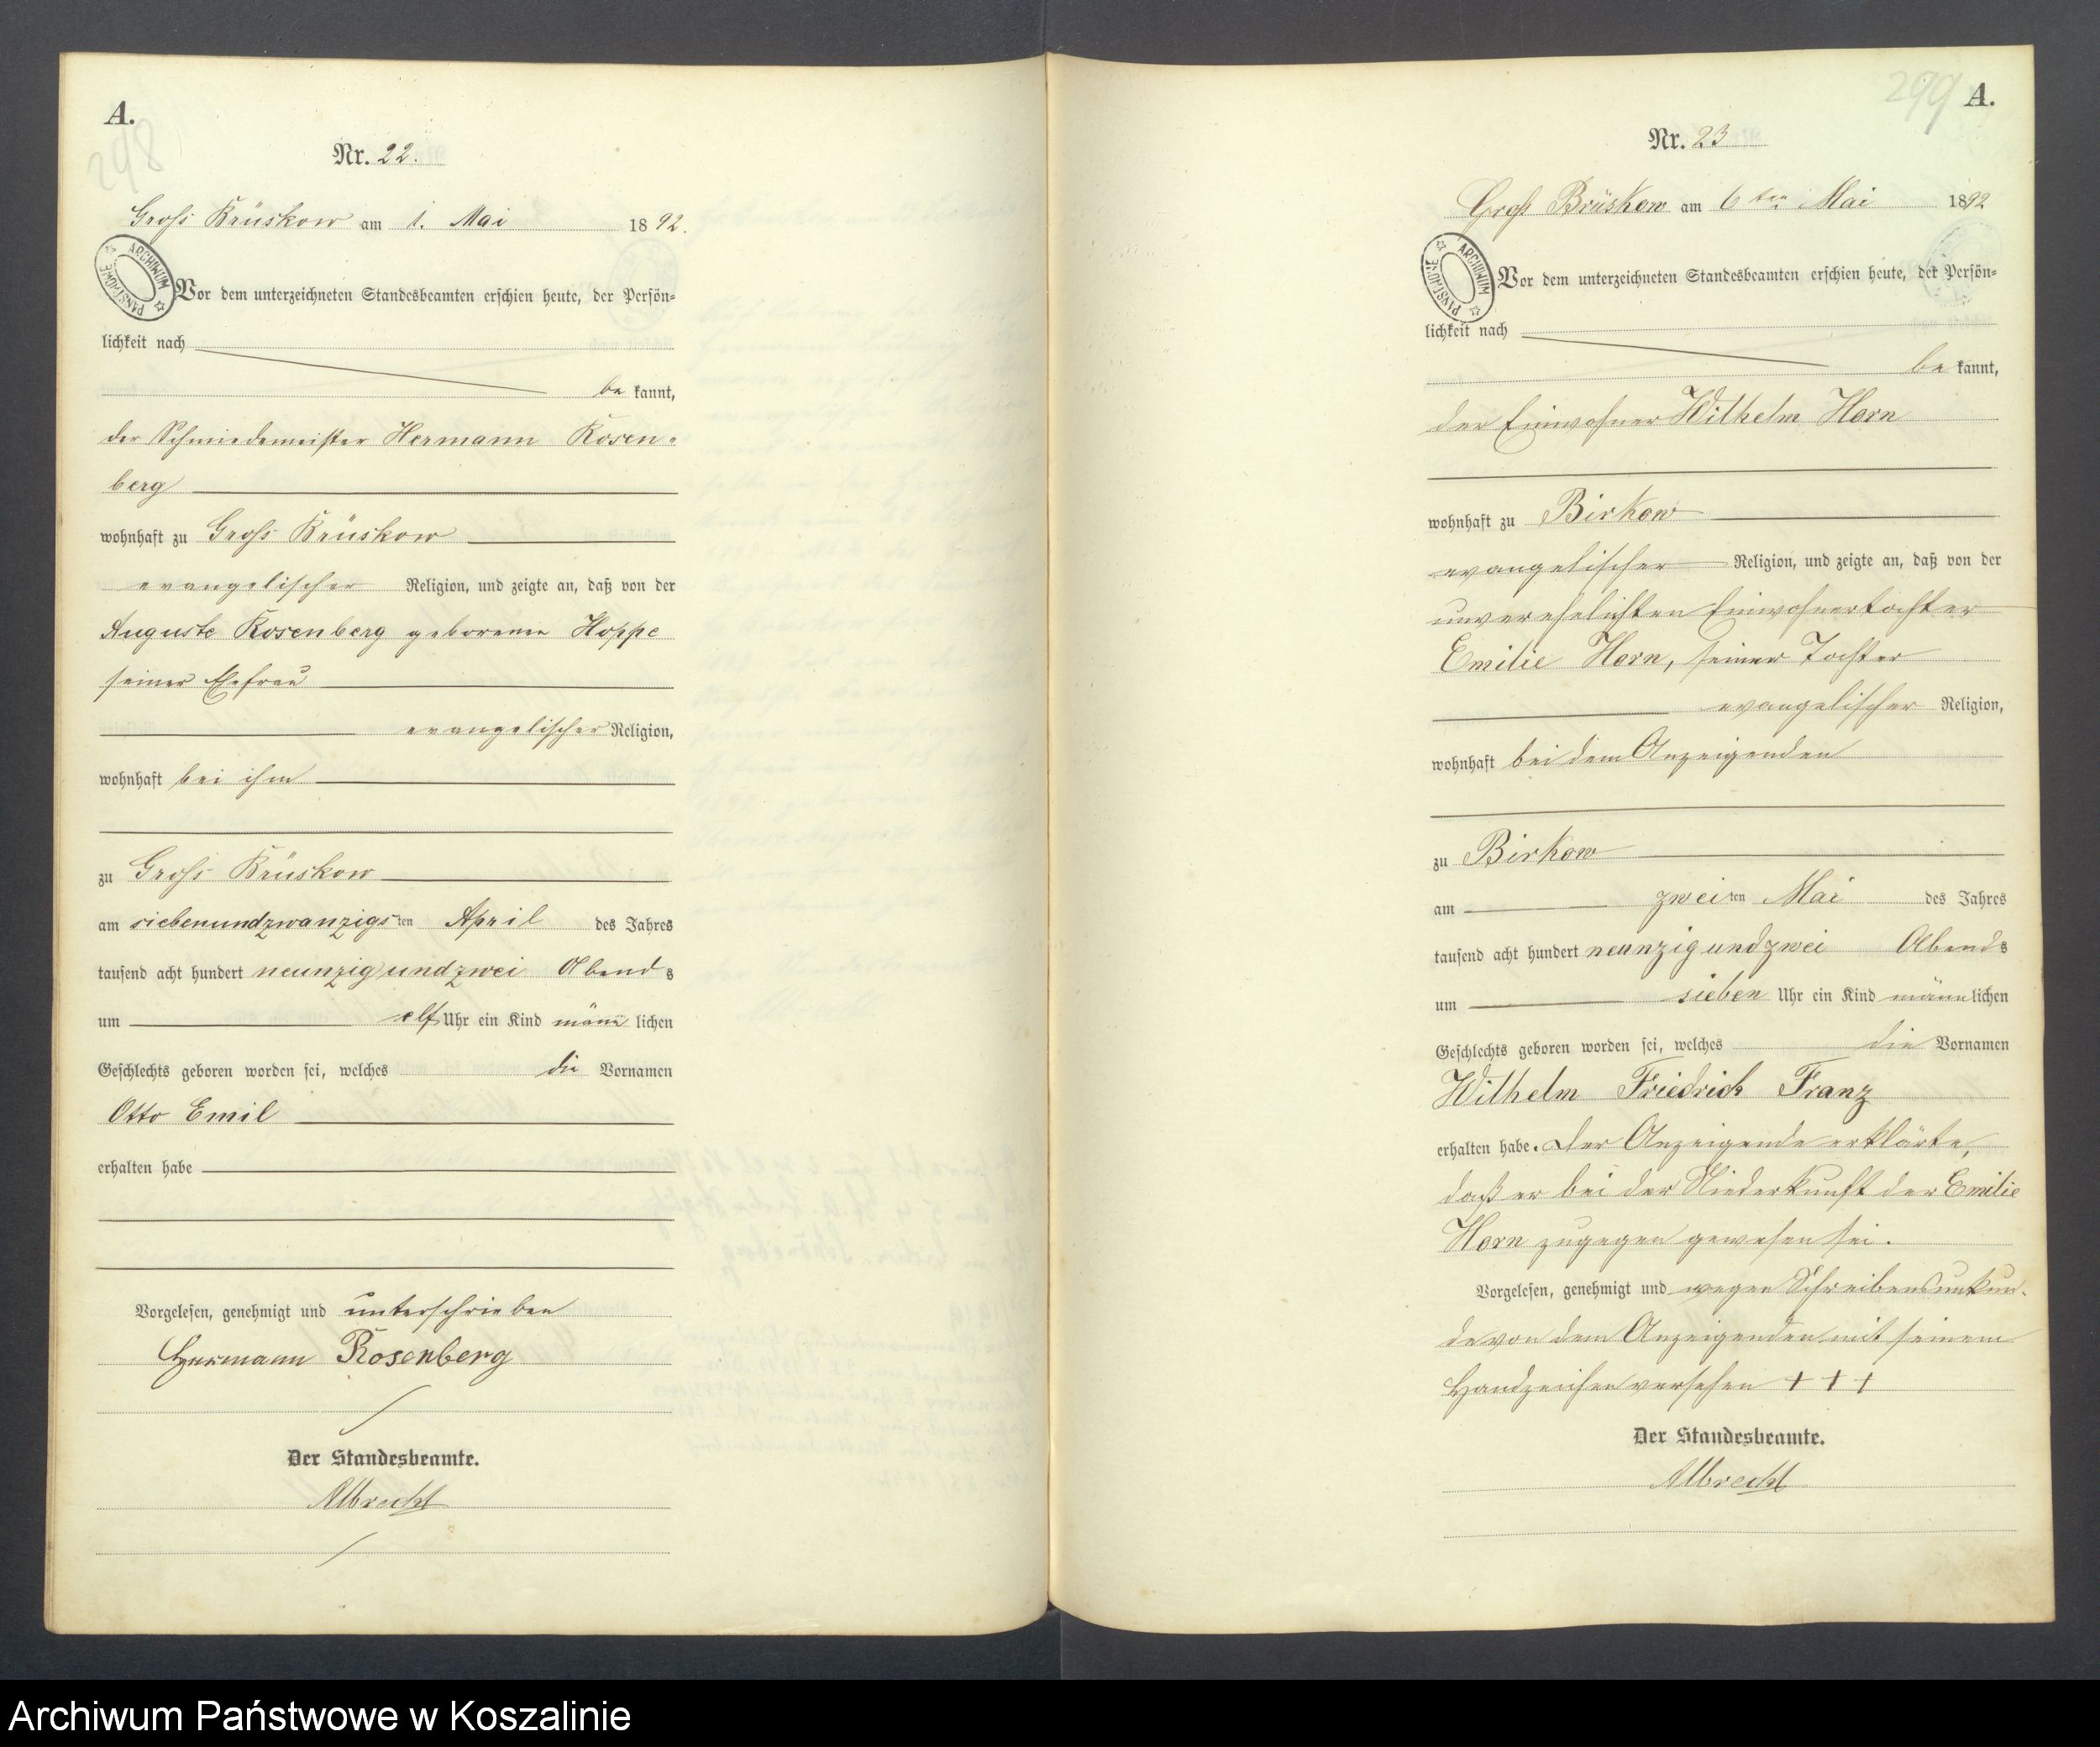 A.
298
Nr. 22.
Gross Brüskow am 1. Mai 1892.
ARCHIWUM PAŃSTWOWE
Vor dem unterzeichneten Standesbeamten erschien heute, der Persön=
lichkeit nach
be kannt,
der Schmiedemeister Hermann Rosen=
berg
wohnhaft zu Gross Brüskow
evangelischer Religion, und zeigte an, daß von der
Auguste Rosenberg geborenen Hoppe
seiner Ehefrau
evangelischer Religion,
wohnhaft bei ihm
zu Gross Brüskow
am siebenundzwanzigsten April des Jahres
tausend acht hundert neunzig und zwei Abends
um elf Uhr ein Kind männlichen
Geschlechts geboren worden sei, welches die Vornamen
Otto Emil
erhalten habe
Vorgelesen, genehmigt und unterschrieben
Hermann Rosenberg
Der Standesbeamte.
Albrecht
299 A.
Nr. 23
Groß Brüskow am 6ten Mai 1892
ARCHIWUM PAŃSTWOWE
Vor dem unterzeichneten Standesbeamten erschien heute, der Persön=
lichkeit nach
be kannt,
der Einwohner Wilhelm Horn
wohnhaft zu Birkow
evangelischer Religion, und zeigte an, daß von der
unverehelichten Einwohnertochter
Emilie Horn, seiner Tochter
evangelischer Religion,
wohnhaft bei dem Anzeigenden
zu Birkow
am zweiten Mai des Jahres
tausend acht hundert neunzig und zwei Abends
um sieben Uhr ein Kind männlichen
Geschlechts geboren worden sei, welches die Vornamen
Wilhelm Friedrich Franz
erhalten habe. Der Anzeigende erklärte,
daß er bei der Niederkunft der Emilie
Horn zugegen gewesen sei.
Vorgelesen, genehmigt und wegen Schreibensunkun=
de von dem Anzeigenden mit seinem
Handzeichen versehen + + +
Der Standesbeamte.
Albrecht
Archiwum Państwowe w Koszalinie